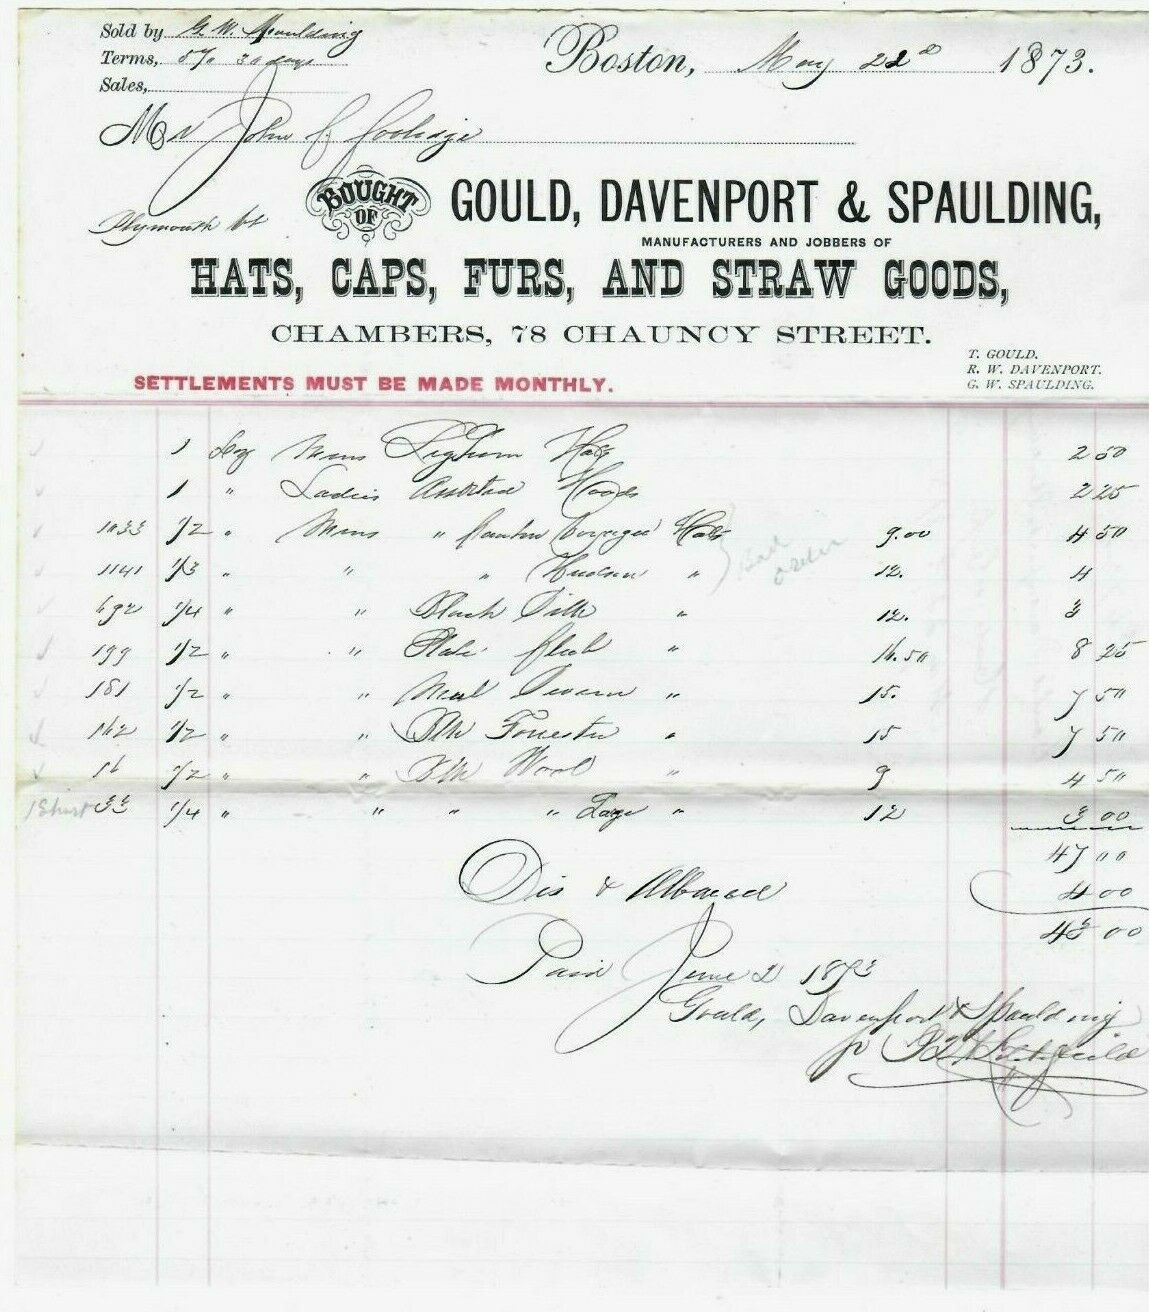 Sold by G. W. Spaulding
Terms, 5% 30 days
Sales,
Boston, May 22d 1873.
Mr John J Coolidge
Plymouth Vt
BOUGHT OF GOULD, DAVENPORT & SPAULDING,
MANUFACTURERS AND JOBBERS OF
HATS, CAPS, FURS, AND STRAW GOODS,
CHAMBERS, 78 CHAUNCY STREET.
T. GOULD.
R. W. DAVENPORT.
G. W. SPAULDING.
SETTLEMENTS MUST BE MADE MONTHLY.
1 Doz Mens Leghorn Hats 2 50
1 " Ladies Assorted Hoods 2 25
1033 1/2 " Mens " Hats 9.00 4 50
Bad order
1141 1/3 " " " Hudson " 12. 4
692 1/4 " " Black Silk " 12. 3
199 1/2 " " " 16.50 8 25
181 1/2 " " " 15. 7 50
162 1/2 " " Blk Forrester " 15 7 50
16 1/2 " " Blk Wool " 9 4 50
1 Short 33 1/4 " " " " Large " 12 3 00
47 00
Dis & 4 00
43 00
Paid June 2 1873
Gould, Davenport & Spaulding